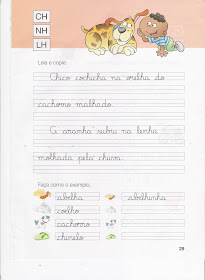 CH
NH
LH
Leia e copie.
Chico cochicha na orelha do
cachorro malhado.
A aranha subiu na lenha
molhada pela chuva.
Faça como o exemplo:
abelha abelhinha
coelho
cachorro
chinelo
29